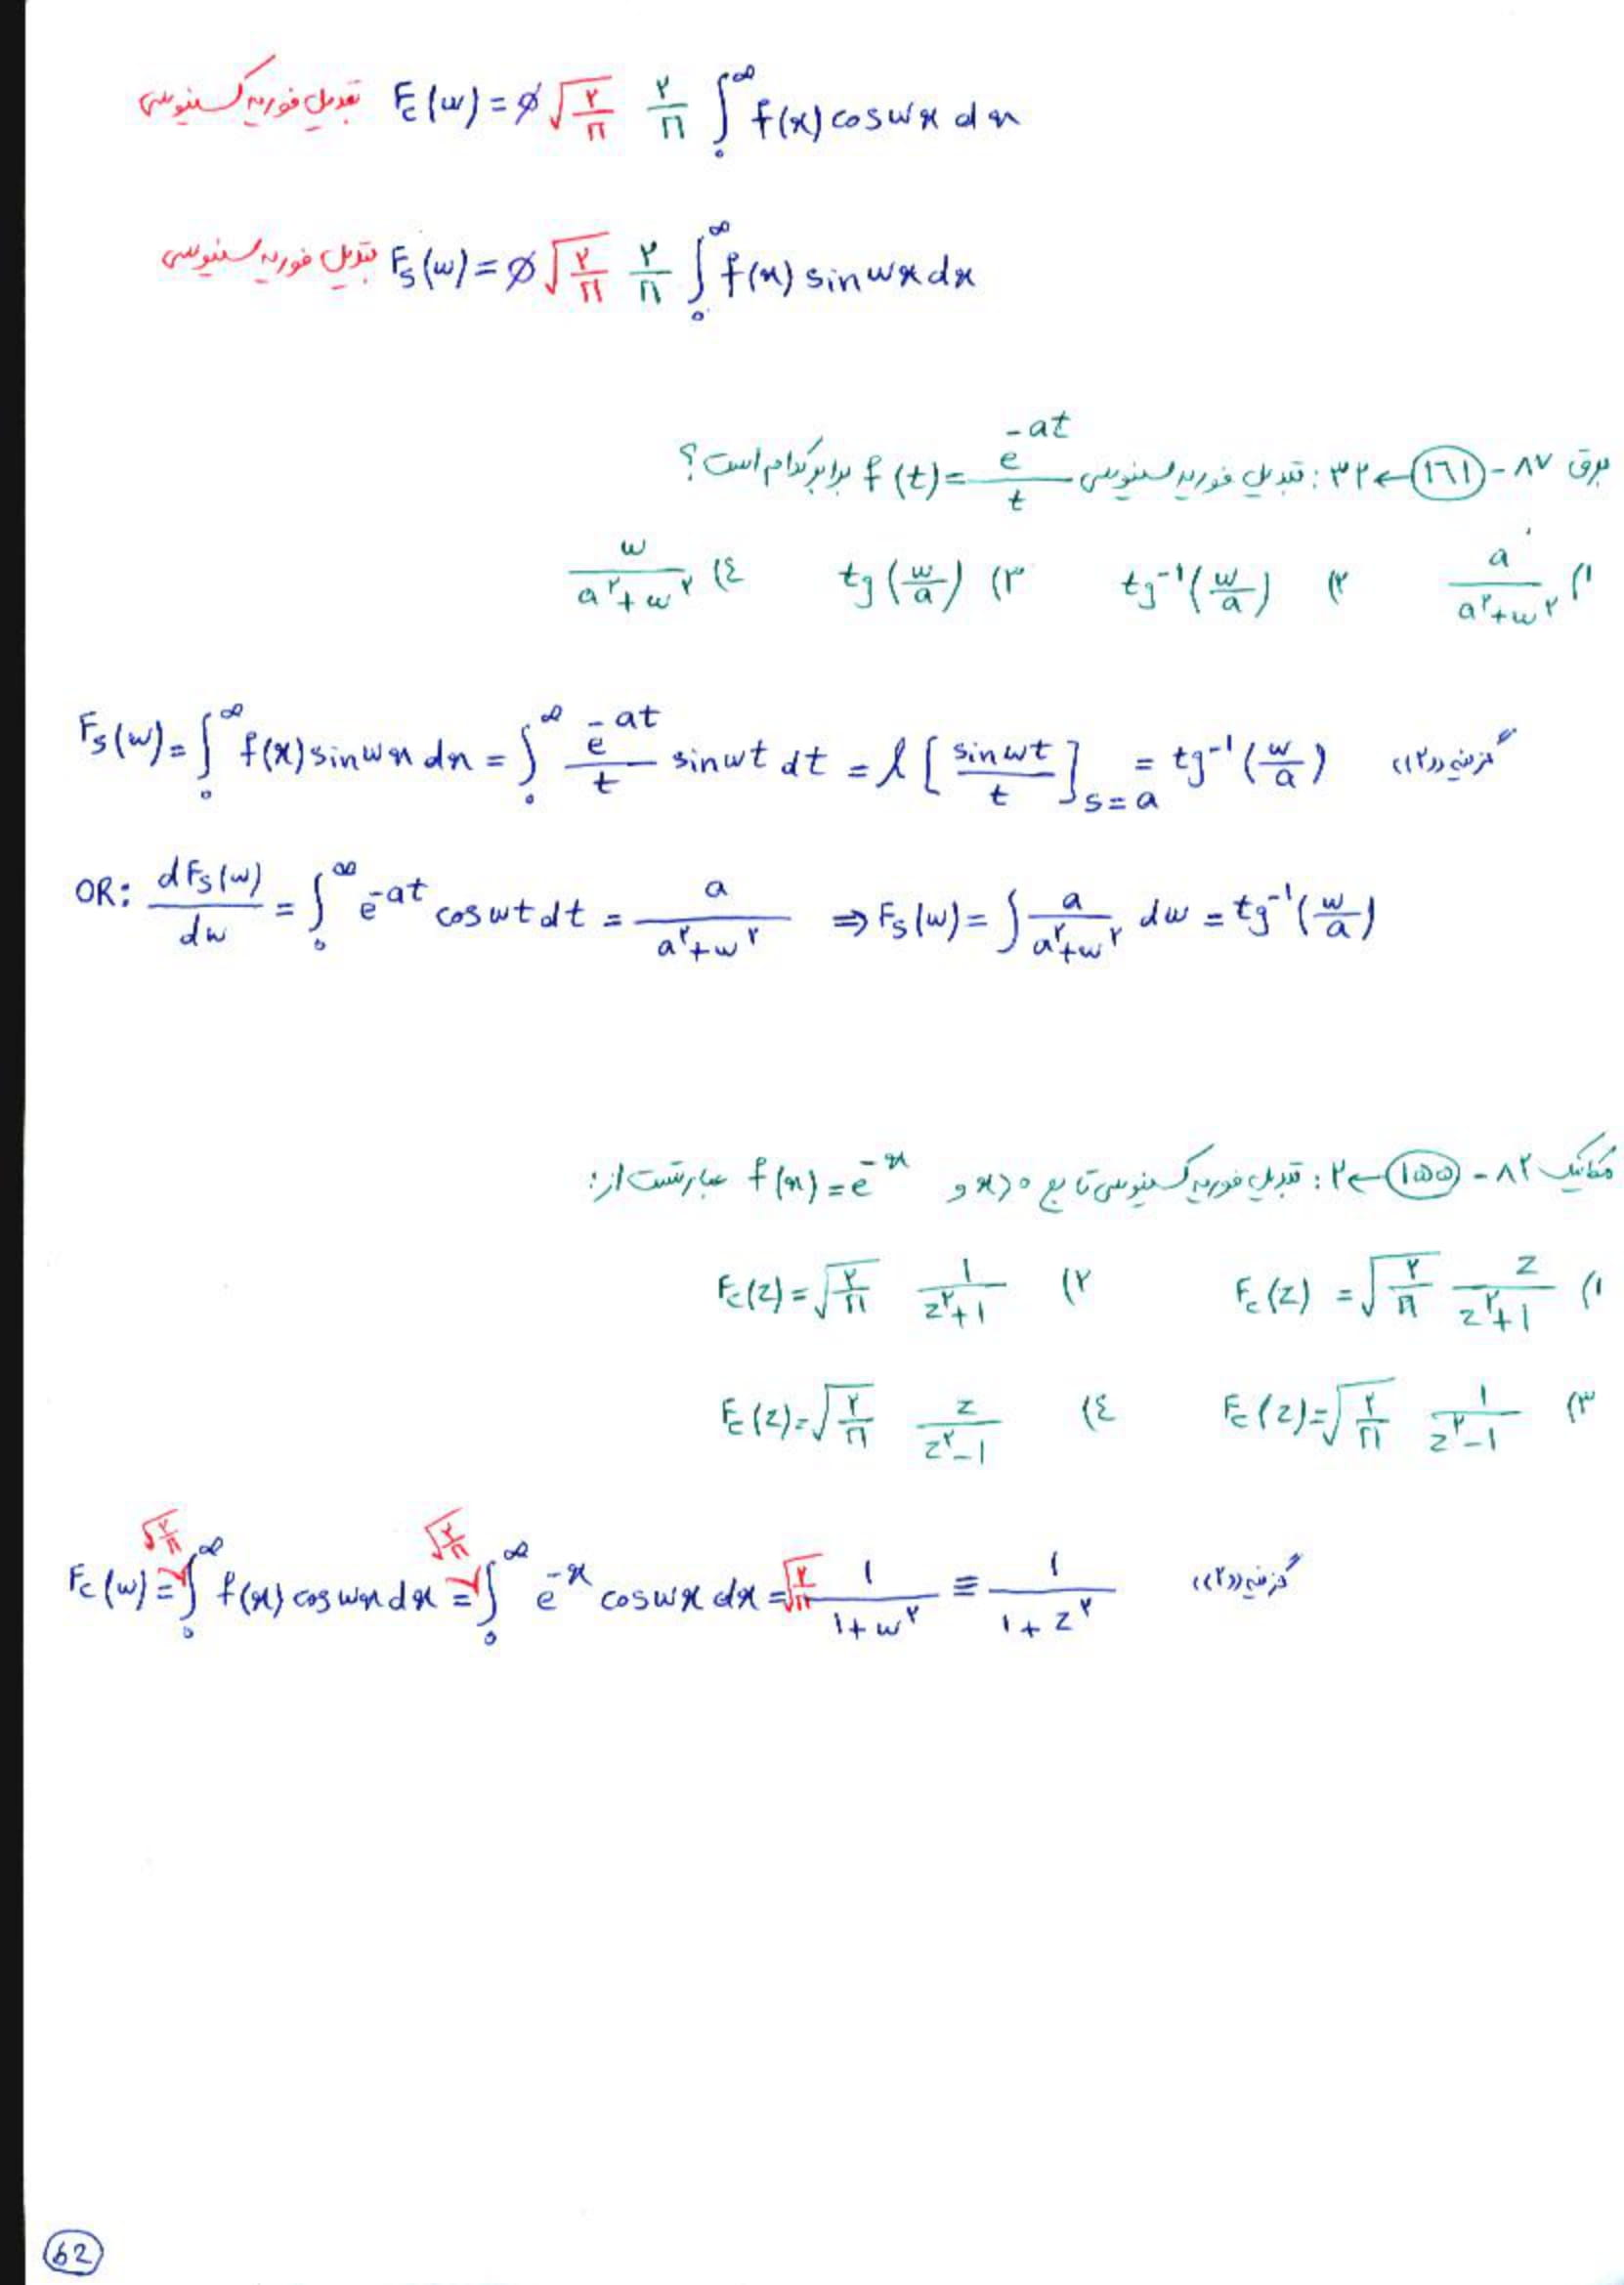 تبدیل فوریه کسینوسی F_c(w) = ∅ √(۲/π) ۲/π ∫₀^∞ f(x) cos wx dx
تبدیل فوریه سینوسی F_s(w) = ∅ √(۲/π) ۲/π ∫₀^∞ f(x) sin wx dx
برق ۸۷ - (۱۶۱) ← ۳۲ : تبدیل فوریه سینوسی f(t) = e^{-at}/t برابر کدام است؟
۱) a/(a^۲+w^۲) ۲) tg^{-1}(w/a) ۳) tg(w/a) ٤) w/(a^۲+w^۲)
F_s(w) = ∫₀^∞ f(x) sin wx dx = ∫₀^∞ e^{-at}/t sin wt dt = l[sin wt/t]_{s=a} = tg^{-1}(w/a) گزینه ((۲))
OR: dF_s(w)/dw = ∫₀^∞ e^{-at} cos wt dt = a/(a^۲+w^۲) ⇒ F_s(w) = ∫ a/(a^۲+w^۲) dw = tg^{-1}(w/a)
مکانیک ۸۲ - (۱۵۵) ← ۲ : تبدیل فوریه کسینوسی تابع x>0 و f(x) = e^{-x} عبارتست از:
۱) F_c(z) = √(۲/π) z/(z^۲+1) ۲) F_c(z) = √(۲/π) 1/(z^۲+1)
۳) F_c(z) = √(۲/π) 1/(z^۲-1) ٤) F_c(z) = √(۲/π) z/(z^۲-1)
F_c(w) = √(۲/π) ∫₀^∞ f(x) cos wx dx = √(۲/π) ∫₀^∞ e^{-x} cos wx dx = √(۲/π) 1/(1+w^۲) ≡ 1/(1+z^۲) گزینه ((۲))
62